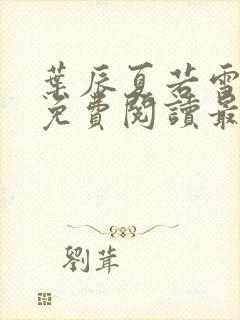 葉辰夏若雪
免費閱讀最
劉茸